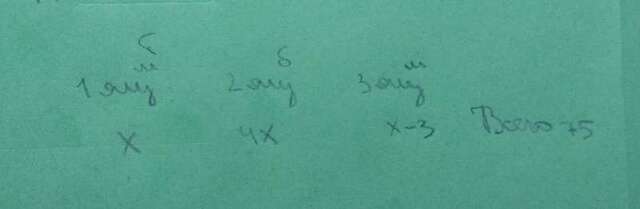 б
м б м
1 ящ 2 ящ 3 ящ
x 4x x-3 Всего 75